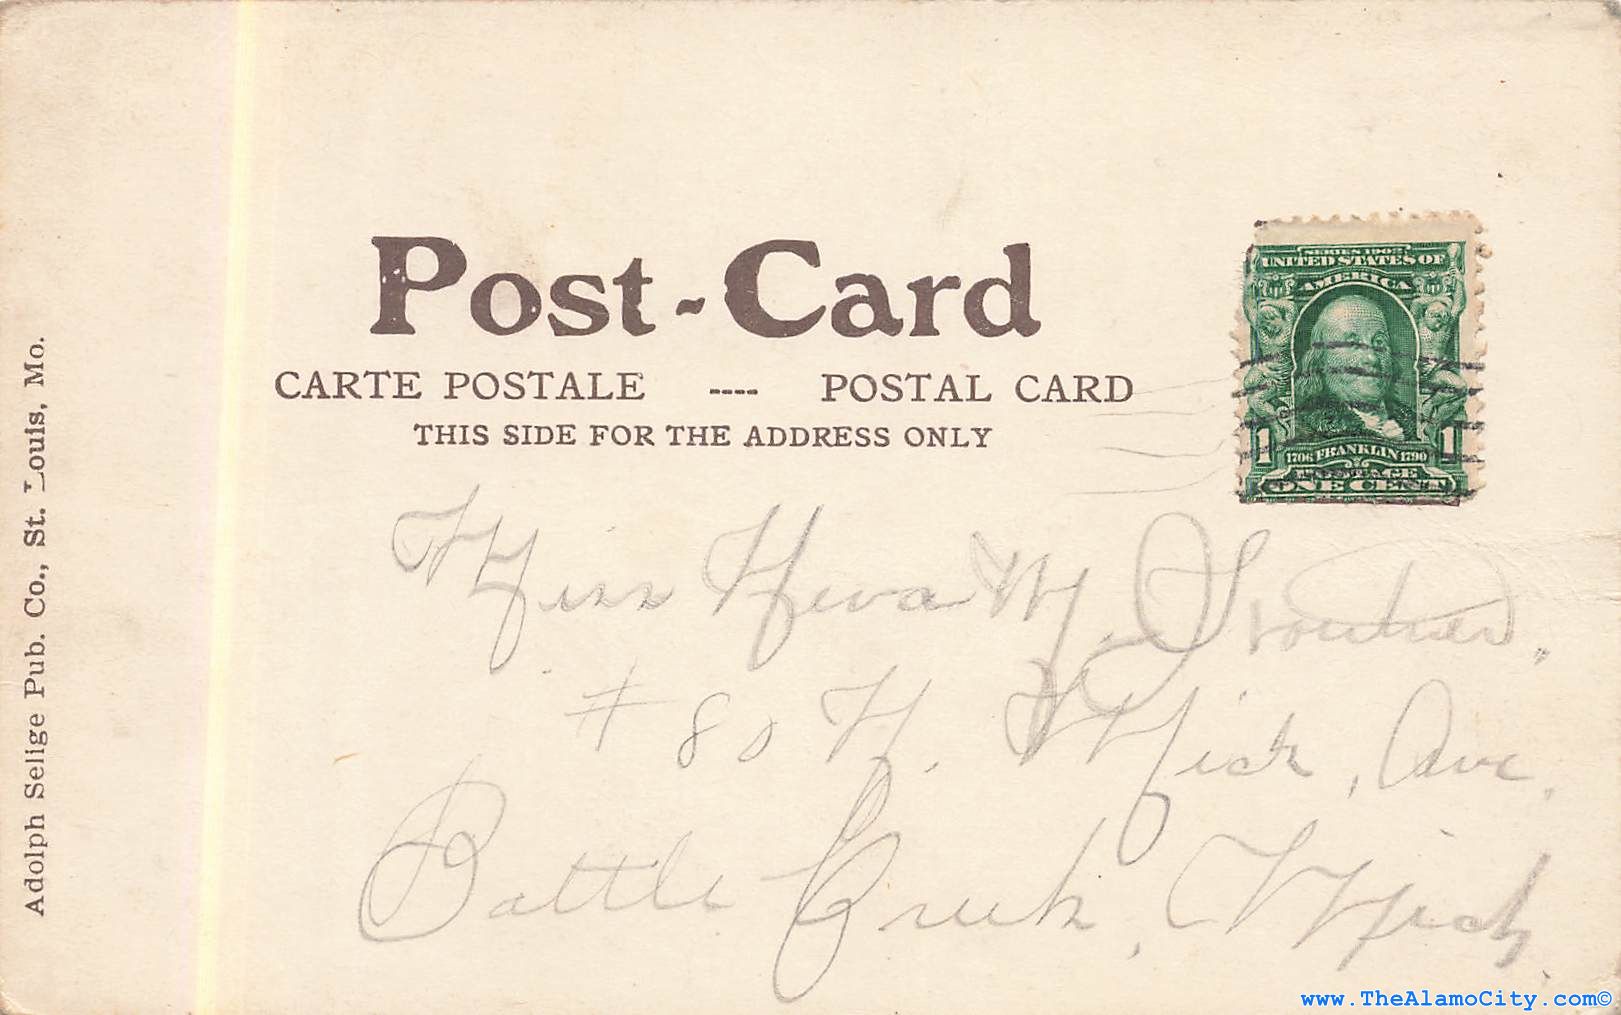 Post-Card
CARTE POSTALE ---- POSTAL CARD
THIS SIDE FOR THE ADDRESS ONLY
SERIES 1902
UNITED STATES OF
AMERICA
1 1
1706 FRANKLIN 1790
POSTAGE
ONE CENT
Miss Neva M.
#80 N. Mich, Ave.
Battle Creek, Mich.
Adolph Selige Pub. Co., St. Louis, Mo.
www.TheAlamoCity.com©